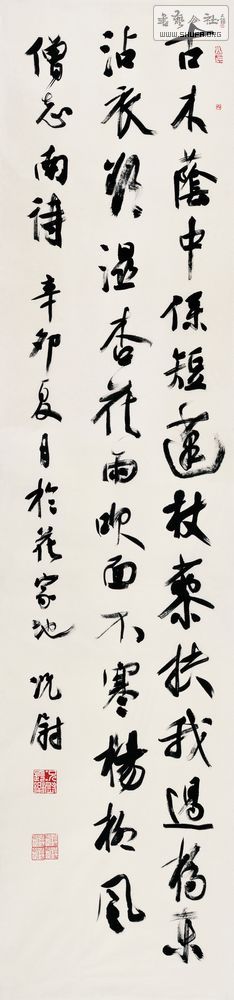 書藝公社
WWW.SHUFA.ORG
古木蔭中係短篷杖藜扶我過橋東
沾衣欲濕杏花雨吹面不寒楊柳風
僧志南詩 辛卯夏月於花家地